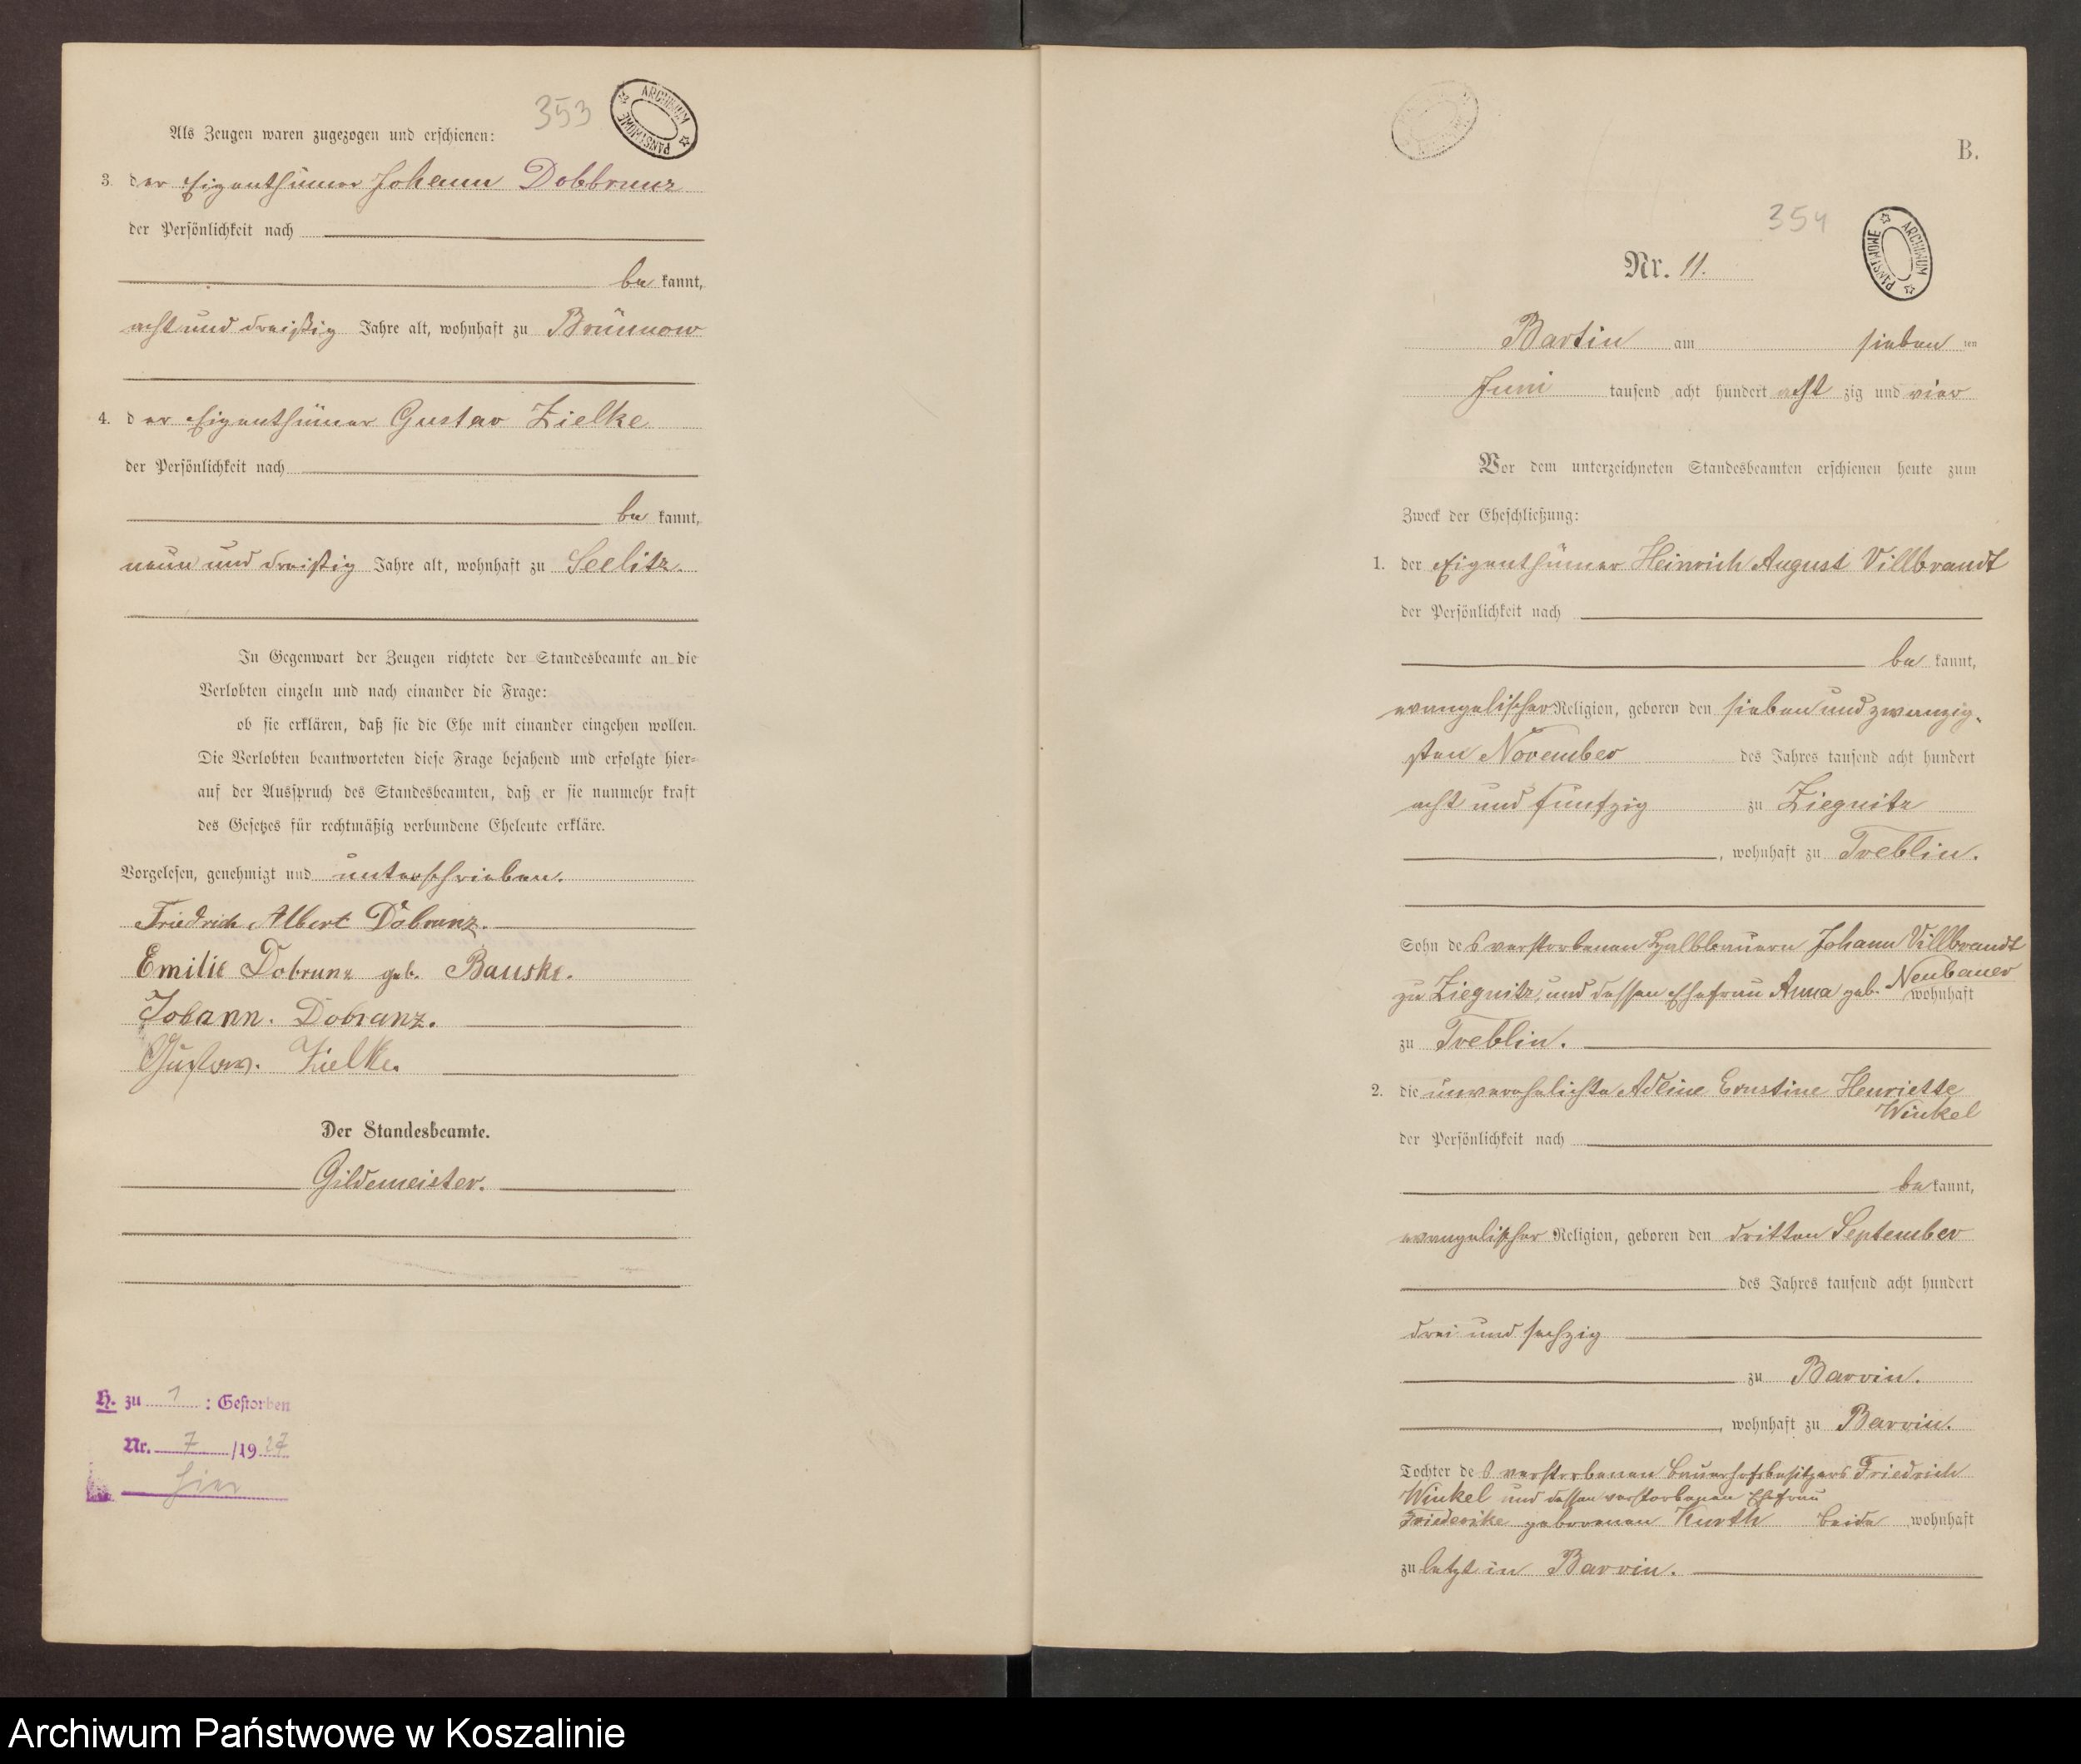 353
ARCHIWUM PAŃSTWOWE
Als Zeugen waren zugezogen und erschienen:
3. der Eigenthümer Johann Dobbrunz
der Persönlichkeit nach
be kannt,
acht und dreißig Jahre alt, wohnhaft zu Brünnow
4. der Eigenthümer Gustav Zielke
der Persönlichkeit nach
be kannt,
neun und dreißig Jahre alt, wohnhaft zu Seelitz.
In Gegenwart der Zeugen richtete der Standesbeamte an die
Verlobten einzeln und nach einander die Frage:
ob sie erklären, daß sie die Ehe mit einander eingehen wollen.
Die Verlobten beantworteten diese Frage bejahend und erfolgte hier=
auf der Ausspruch des Standesbeamten, daß er sie nunmehr kraft
des Gesetzes für rechtmäßig verbundene Eheleute erkläre.
Vorgelesen, genehmigt und unterschrieben.
Friedrich Albert Dobrunz.
Emilie Dobrunz geb. Bauske.
Johann. Dobranz.
Gustav. Zielke.
Der Standesbeamte.
Gildemeister.
H. zu 1 : Gestorben
Nr. 7 /19 27
hier
B.
354
ARCHIWUM PAŃSTWOWE
Nr. 11.
Bartin am sieben ten
Juni tausend acht hundert acht zig und vier
Vor dem unterzeichneten Standesbeamten erschienen heute zum
Zweck der Eheschließung:
1. der Eigenthümer Heinrich August Villbrandt
der Persönlichkeit nach
be kannt,
evangelischer Religion, geboren den sieben und zwanzig-
sten November des Jahres tausend acht hundert
acht und fünfzig zu Ziegnitz
, wohnhaft zu Treblin.
Sohn des verstorbenen Halbbauern Johann Villbrandt
zu Ziegnitz, und dessen Ehefrau Anna geb. Neubauer wohnhaft
zu Treblin.
2. die unverehelichte Adline Ernstine Henriette
Winkel
der Persönlichkeit nach
be kannt,
evangelischer Religion, geboren den dritten September
des Jahres tausend acht hundert
drei und sechzig
zu Barvin.
, wohnhaft zu Barvin.
Tochter des verstorbenen Bauerhofsbesitzers Friedrich
Winkel und dessen verstorbenen Ehefrau
Friederike geborenen Kurth beide wohnhaft
zu letzt in Barvin.
Archiwum Państwowe w Koszalinie